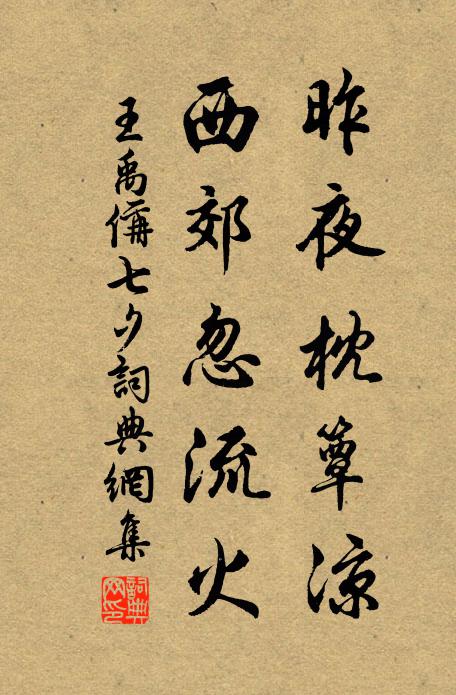 昨夜枕簟凉
西郊忽流火
王禹偁七夕詞典網集
詞典网印